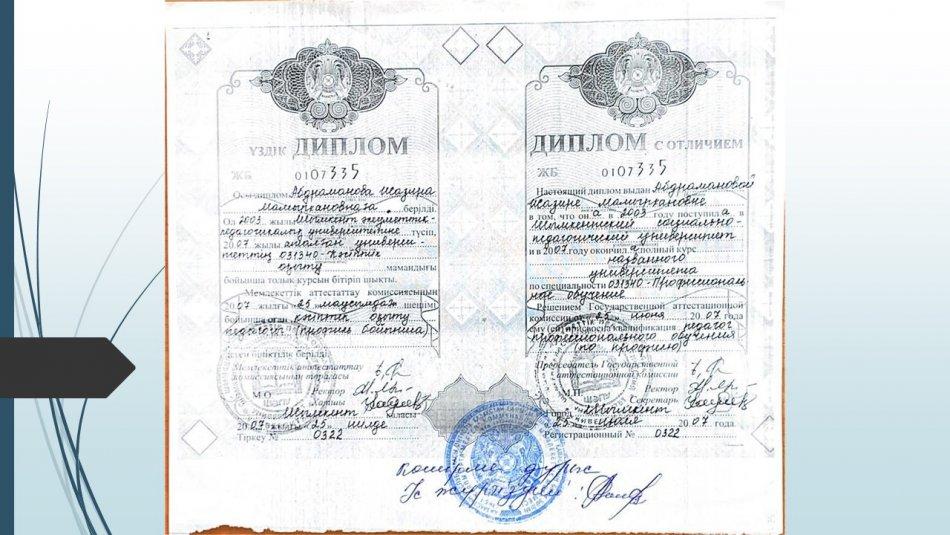 ҮЗДІК ДИПЛОМ
ЖБ 0107335
Осы диплом Абдраманова Жазира
Мамырхановнаға берілді.
Ол 2003 жылы Шымкент әлеуметтік-
педагогикалық университетіне түсіп,
2007 жылы аталған универси-
теттің 031340-Кәсіптік
оқыту мамандығы
бойынша толық курсын бітіріп шықты.
Мемлекеттік аттестаттау комиссиясының
2007 жылғы «25 маусымдағы шешімі
бойынша оған кәсіптік оқыту
педагогі (профиль бойынша)
біліктілік берілді.
Мемлекеттік аттестаттау
комиссиясының төрағасы
М.О. Ректор
Хатшы
Шымкент қаласы
2007 жылғы «25» шілде
Тіркеу № 0322
ДИПЛОМ С ОТЛИЧИЕМ
ЖБ 0107335
Настоящий диплом выдан Абдрамановой
Жазире Мамырхановне
в том, что он а в 2003 году поступил а в
Шымкентский социально-
педагогический университет
и в 2007 году окончил а полный курс
названного
университета
по специальности 031340-Профессиональ-
ное обучение
Решением Государственной аттестационной
комиссии от 25 июня 2007 года
ему (ей) присвоена квалификация педагог
профессионального обучения
(по профилю)
Председатель Государственной
аттестационной комиссии
М.П. Ректор
Секретарь
Город Шымкент
25 июля 2007 года.
Регистрационный № 0322
Көшірме дұрыс